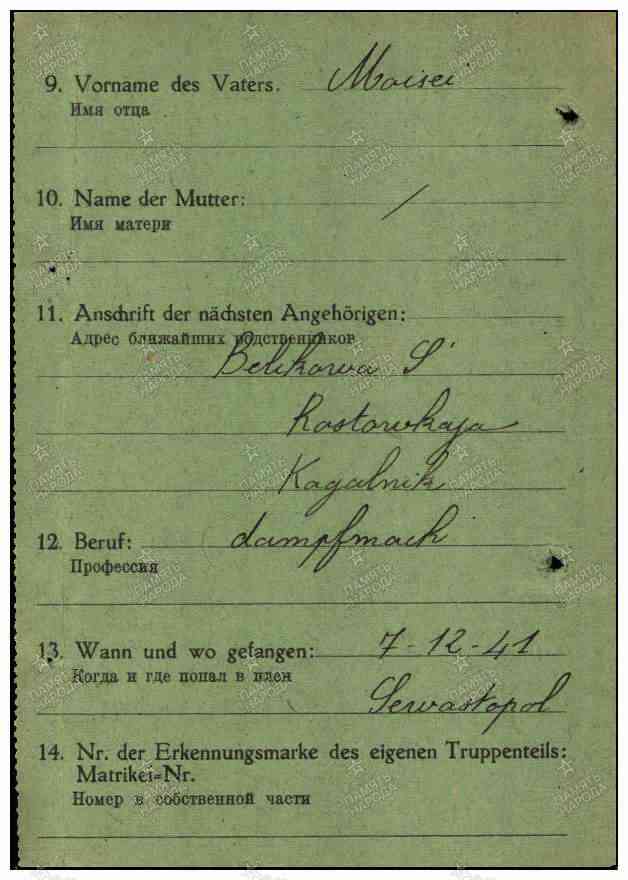 9. Vorname des Vaters. Moisei
Имя отца
10. Name der Mutter: /
Имя матери
11. Anschrift der nächsten Angehörigen:
Адрес ближайших родственников
Belikowa S
Rostowkaja
Kagalnik
12. Beruf: dampfmach
Профессия
13. Wann und wo gefangen: 7-12-41
Когда и где попал в плен
Sewastopol
14. Nr. der Erkennungsmarke des eigenen Truppenteils:
Matrikel=Nr.
Номер в собственной части
ПАМЯТЬ НАРОДА